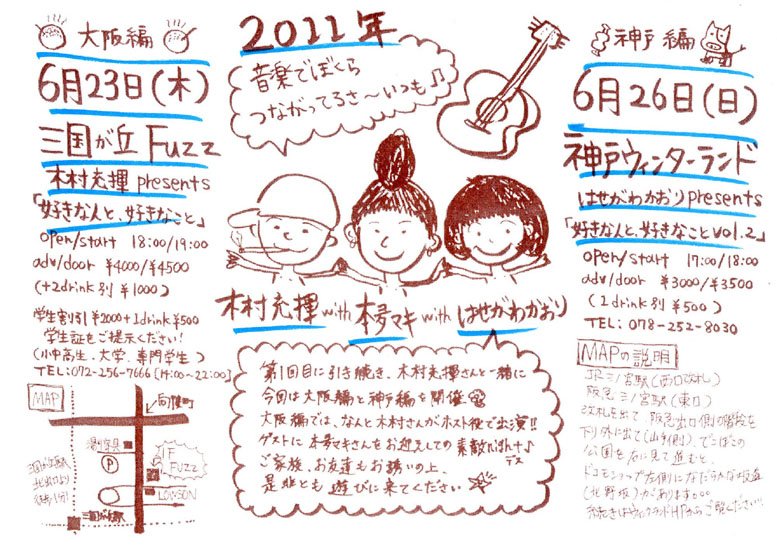 大阪編
6月23日(木)
三国が丘 Fuzz
木村充揮 presents
「好きな人と、好きなこと」
open/start 18:00/19:00
adv/door ¥4000/¥4500
(+2drink 別 ¥1000)
学生割引 ¥2000+1drink ¥500
学生証をご提示ください!
(小中高生、大学、専門学生)
TEL:072-256-7666 [H:00~22:00]
MAP
向陵町
P
1F
FUZZ
LOWSON
三国が丘駅
2011年
音楽でぼくら
つながってるさ~いつも♪
木村充揮 with 本夛マキ with はせがわかおり
第1回目に引き続き、木村充揮さんと一緒に
今回は大阪編と神戸編を開催
大阪編では、なんと木村さんがホスト役で出演!!
ゲストに本夛マキさんをお迎えしての素敵night♪デス
ご家族、お友達もお誘いの上、
是非とも遊びに来てください
神戸編
6月26日(日)
神戸ウィンターランド
はせがわかおり presents
「好きな人と、好きなこと vol.2」
open/start 17:00/18:00
adv/door ¥3000/¥3500
(1drink 別 ¥500)
TEL:078-252-8030
MAPの説明
JR三ノ宮駅(西口改札)
阪急三ノ宮駅(東口)
改札を出て、阪急出口側の階段を
下り外に出て(山手側)、でこぼこの
公園を右に見て進むと、
ドコモショップ左側になだらかな坂道
(北野坂)があります。。。
続きはウィンターランドHPからご覧ください!!